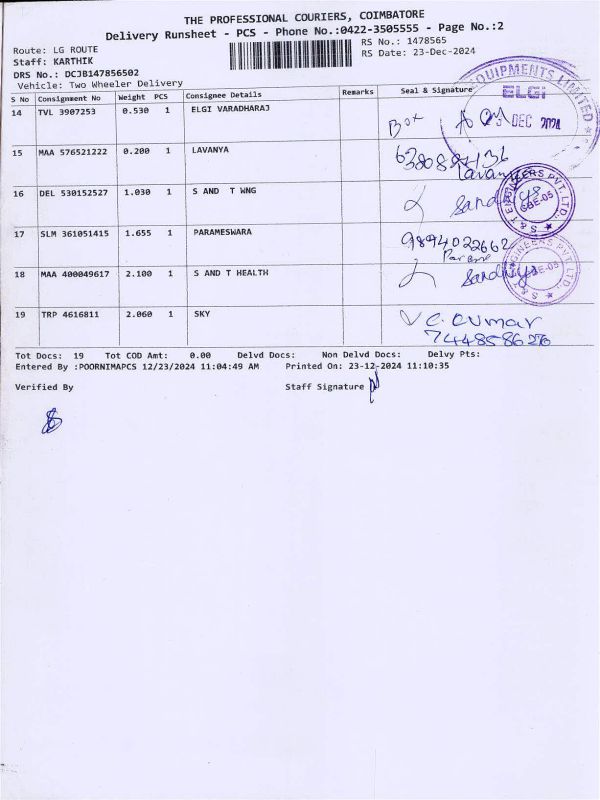 THE PROFESSIONAL COURIERS, COIMBATORE
Delivery Runsheet - PCS - Phone No.:0422-3505555 - Page No.:2
Route: LG ROUTE
RS No.: 1478565
Staff: KARTHIK
RS Date: 23-Dec-2024
DRS No.: DCJB147856502
Vehicle: Two Wheeler Delivery
S No Consignment No Weight PCS Consignee Details Remarks Seal & Signature
14 TVL 3907253 0.530 1 ELGI VARADHARAJ
EQUIPMENTS LIMITED
ELGi
DEC 2024
Box
15 MAA 576521222 0.200 1 LAVANYA
Lavan
16 DEL 530152527 1.030 1 S AND T WNG
Sandhya
S & T ENGINEERS PVT. LTD.
17 SLM 361051415 1.655 1 PARAMESWARA
9894022662
Parame
18 MAA 400049617 2.100 1 S AND T HEALTH
Sandhya
S & T ENGINEERS PVT. LTD.
19 TRP 4616811 2.060 1 SKY
C. Cumar
744858626
Tot Docs: 19 Tot COD Amt: 0.00 Delvd Docs: Non Delvd Docs: Delvy Pts:
Entered By :POORNIMAPCS 12/23/2024 11:04:49 AM Printed On: 23-12-2024 11:10:35
Verified By Staff Signature